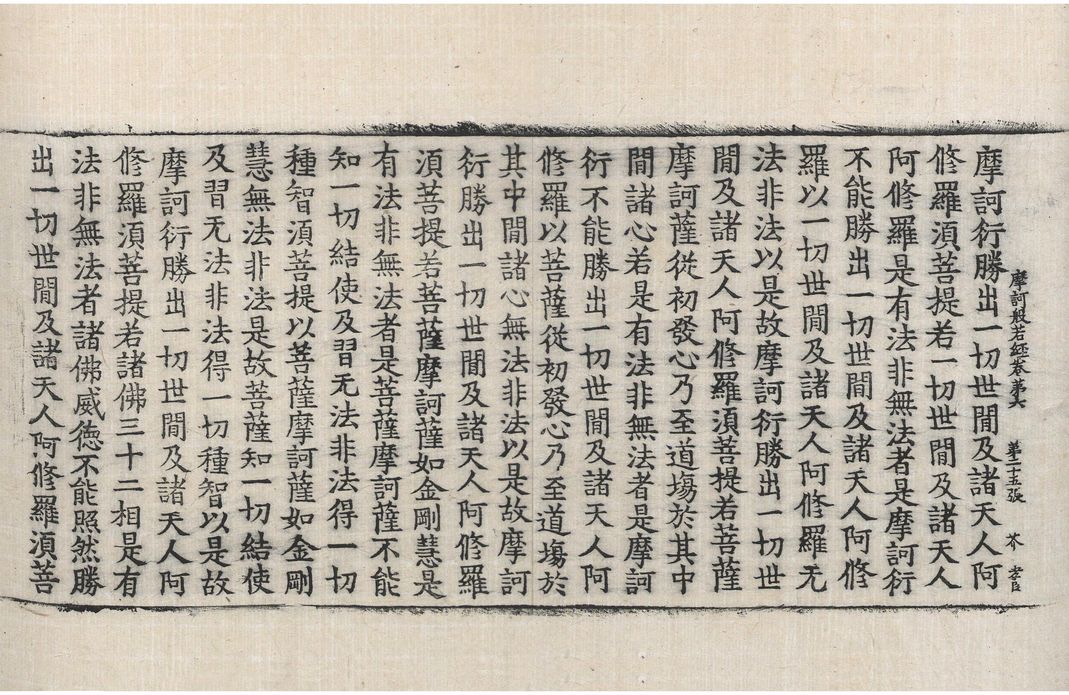 摩訶般若經卷第六 第二十五張 芥 孝臣
摩訶衍勝出一切世閒及諸天人阿
修羅湏菩提若一切世閒及諸天人
阿修羅是有法非無法者是摩訶衍
不能勝出一切世閒及諸天人阿修
羅以一切世閒及諸天人阿修羅无
法非法以是故摩訶衍勝出一切世
閒及諸天人阿修羅湏菩提若菩薩
摩訶薩從初發心乃至道塲於其中
閒諸心若是有法非無法者是摩訶
衍不能勝出一切世閒及諸天人阿
修羅以菩薩從初發心乃至道塲於
其中閒諸心無法非法以是故摩訶
衍勝出一切世閒及諸天人阿修羅
湏菩提若菩薩摩訶薩如金剛慧是
有法非無法者是菩薩摩訶薩不能
知一切結使及習无法非法得一切
種智湏菩提以菩薩摩訶薩如金剛
慧無法非法是故菩薩知一切結使
及習无法非法得一切種智以是故
摩訶衍勝出一切世閒及諸天人阿
修羅湏菩提若諸佛三十二相是有
法非無法者諸佛威德不能照然勝
出一切世閒及諸天人阿修羅湏菩